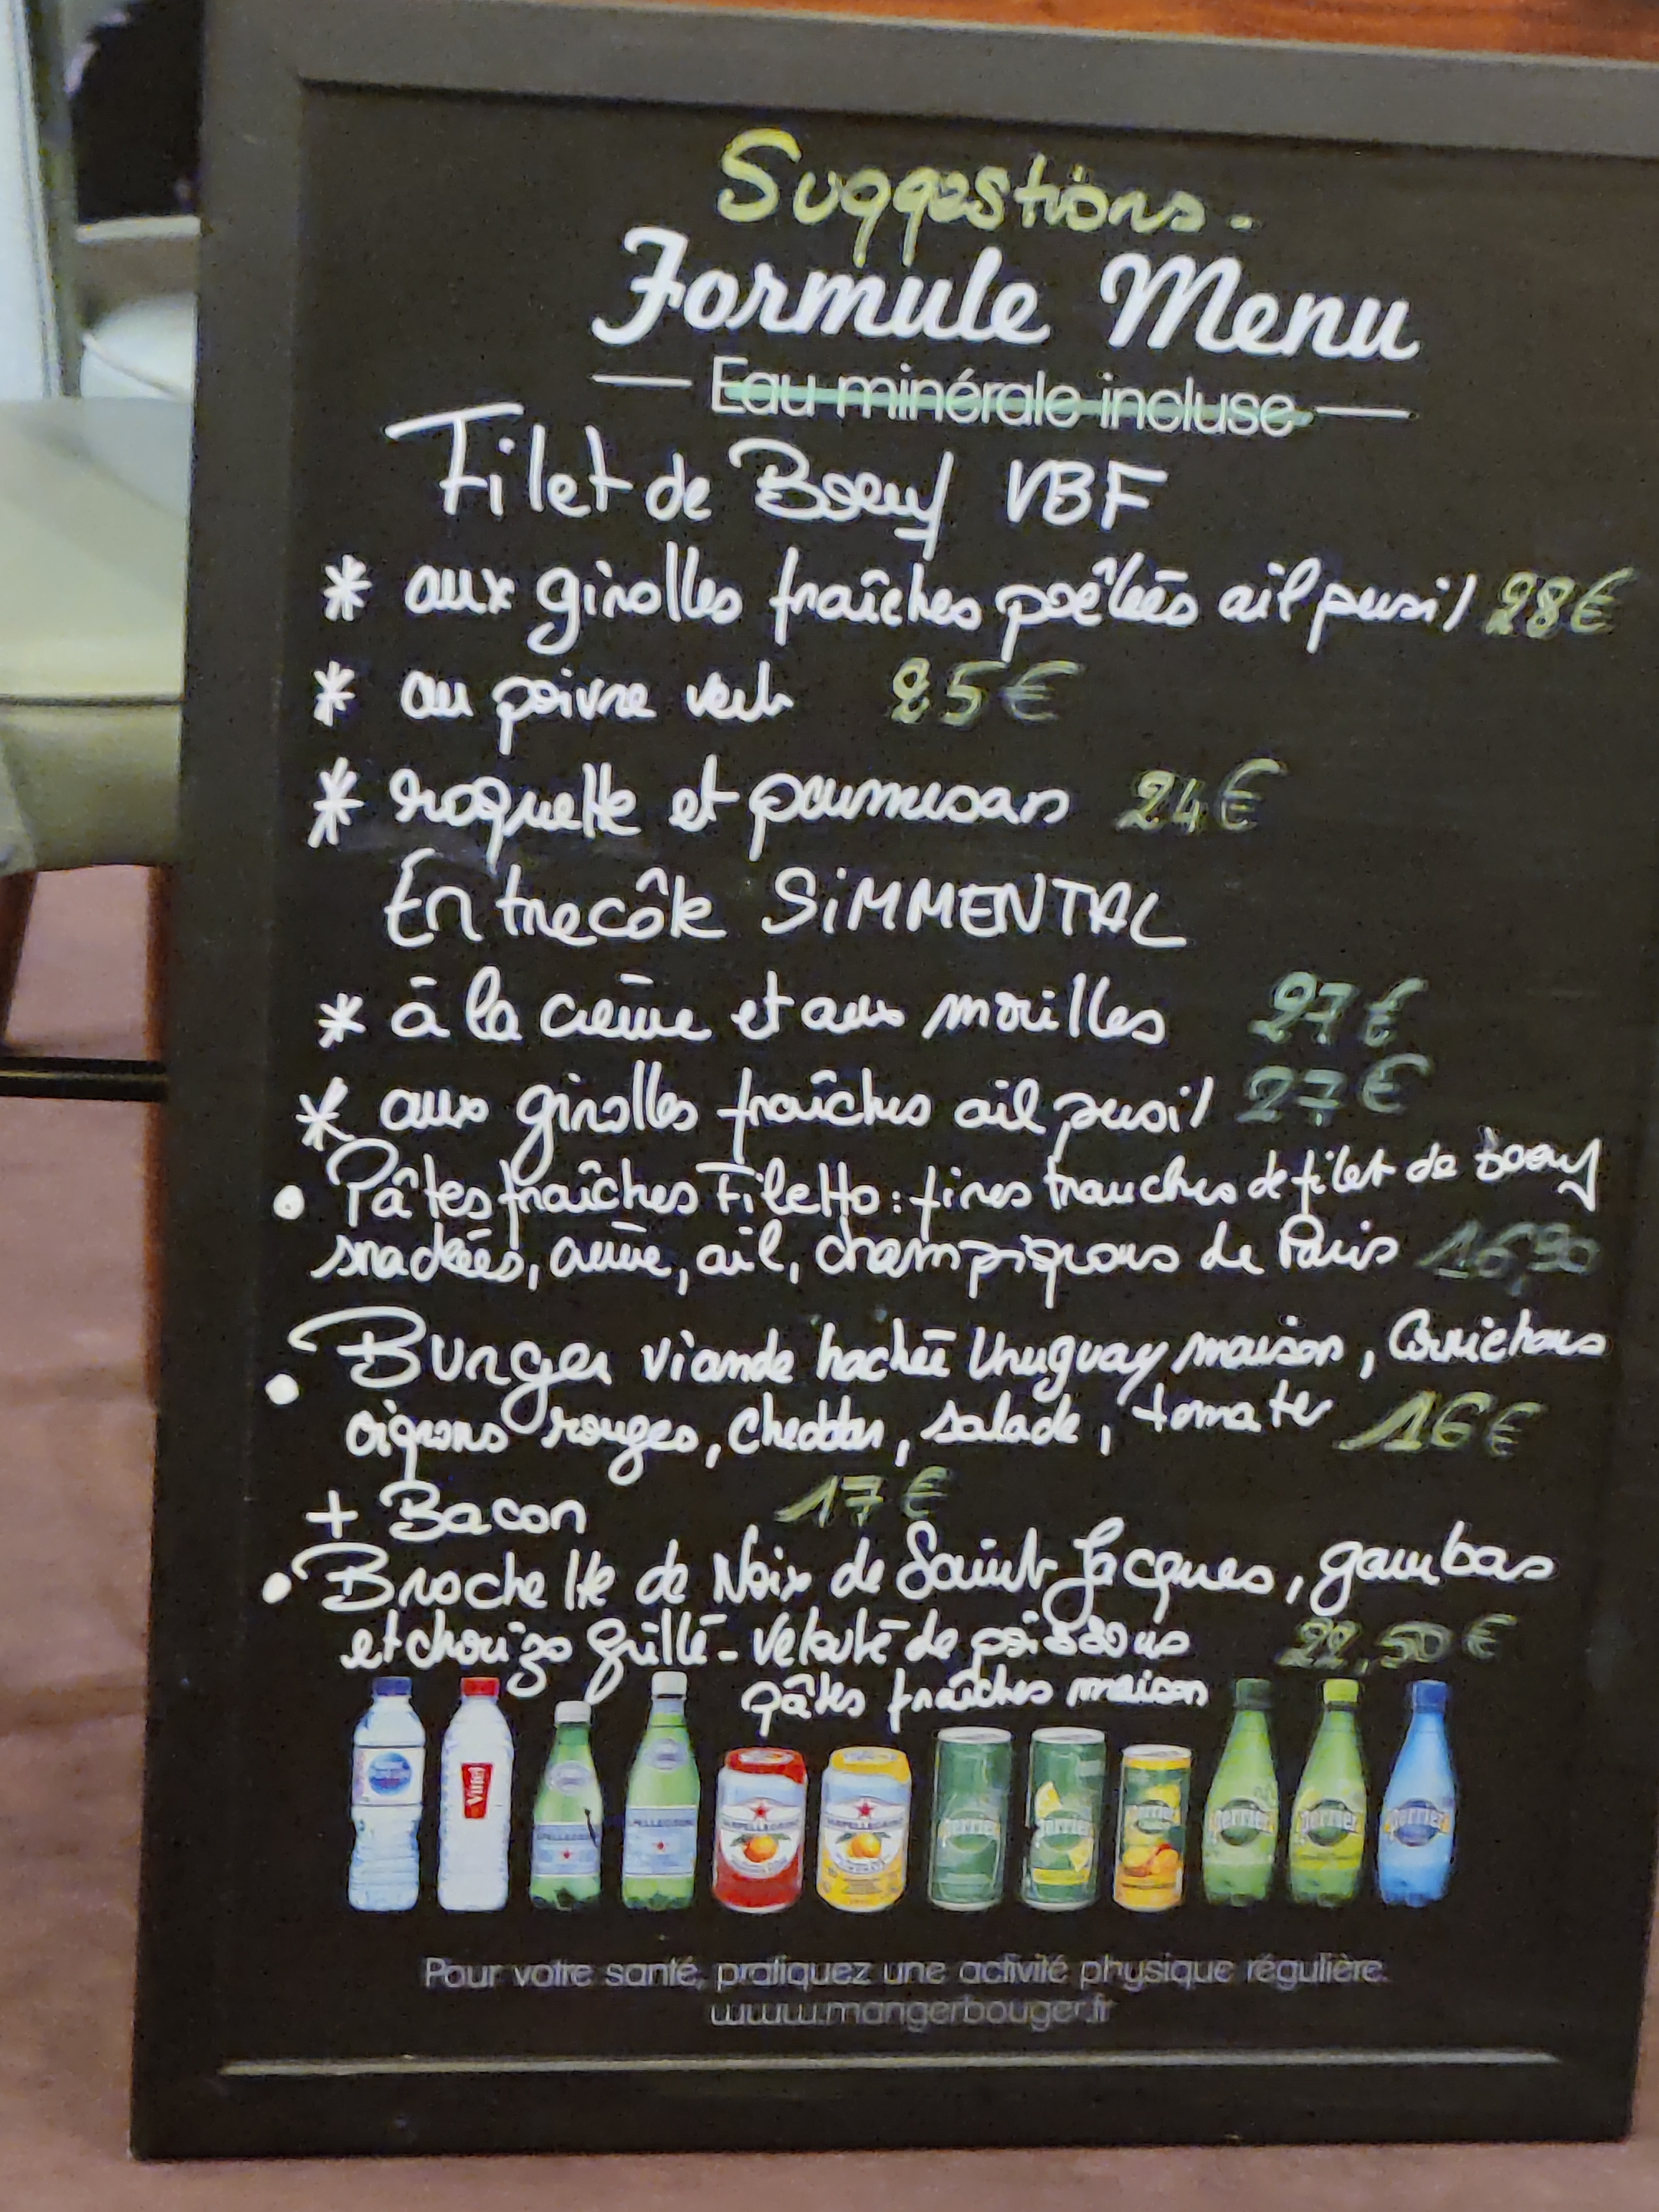 Suggestions.
Formule Menu
Eau minérale incluse
Filet de Boeuf VBF
* aux girolles fraîches poêlées ail persil 28€
* au poivre vert 25€
* roquette et parmesan 24€
Entrecôte SiMMENTAL
* à la crème et aux morilles 27€
* aux girolles fraîches ail persil 27€
• Pâtes fraîches Filetto : fines tranches de filet de boeuf
snackées, crème, ail, champignons de Paris 16,90
• Burger viande hachée Uruguay maison, Cornichons
oignons rouges, cheddar, salade, tomates 16€
+ Bacon 17€
• Brochette de Noix de Saint Jacques, gambas
et chorizo grillé - velouté de poissons 22,50€
pâtes fraîches maison
Vittel
S.PELLEGRINO
S.PELLEGRINO
SANPELLEGRINO
SANPELLEGRINO
perrier
perrier
perrier
perrier
perrier
perrier
Pour votre santé, pratiquez une activité physique régulière.
www.mangerbouger.fr